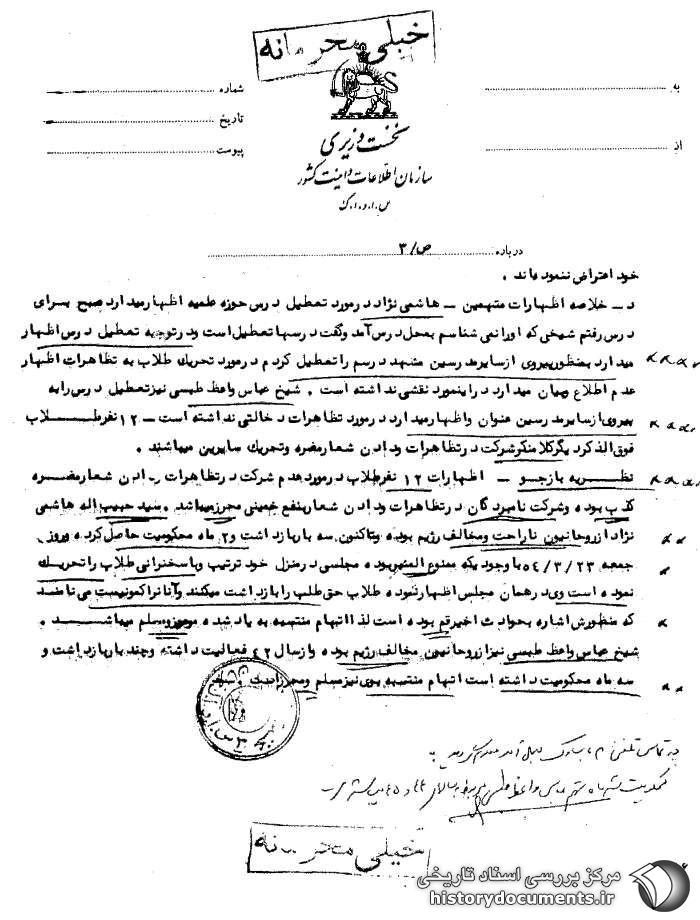 خیلی محرمانه
به
شماره
از
تاریخ
پیوست
نخست وزیری
سازمان اطلاعات و امنیت کشور
س.ا.و.ا.ک
درباره ص/۳
خود اعتراض ننموده اند .
د ـ خلاصه اظهارات متهمین ـ هاشمی نژاد در مورد تعطیل درس حوزه علمیه اظهار میدارد صبح برای
درس رفتم شیخی که او را نمی شناسم بمحل درس آمد و گفت درسها تعطیل است و در توجیه تعطیل درس اظهار
میدارد بمنظور پیروی از سایر مدرسین مشهد درسم را تعطیل کردم در مورد تحریک طلاب به تظاهرات اظهار
عدم اطلاع و بیان میدارد در اینمورد نقشی نداشته است . شیخ عباس واعظ طبسی نیز تعطیل درس را به
پیروی از سایر مدرسین عنوان و اظهار میدارد در مورد تظاهرات دخالتی نداشته است ـ ۱۲ نفر طلاب
فوق الذکر دیگر کلا منکر شرکت در تظاهرات و دادن شعار مضره و تحریک سایرین میباشند .
نظریه بازجو ـ اظهارات ۱۲ نفر طلاب در مورد عدم شرکت در تظاهرات و دادن شعار مضره
کذب بوده و شرکت نامبردگان در تظاهرات و دادن شعار بنفع خمینی محرز میباشد . سید حبیب اله هاشمی
نژاد از روحانیون ناراحت و مخالف رژیم بوده و تاکنون سه بار بازداشت و ۲ ماه محکومیت حاصل کرده و روز
جمعه ۵۴/۳/۲۳ با وجودیکه ممنوع المنبر بوده مجلسی در منزل خود ترتیب و با سخنرانی طلاب را تحریک
نموده است وی در همان مجلس اظهار نموده طلاب حق طلب را بازداشت میکنند و آنانرا کمونیست می نامند
که منظورش اشاره بحوادث اخیر قم بوده است لذا اتهام منتسبه به یاد شده محرز و مسلم میباشد .
شیخ عباس واعظ طبسی نیز از روحانیون مخالف رژیم بوده و از سال ۴۲ فعالیت داشته و چند بار بازداشت و
سه ماه محکومیت داشته است اتهام منتسبه بوی نیز مسلم و محرز است .
خیلی محرمانه
مرکز بررسی اسناد تاریخی
historydocuments.ir